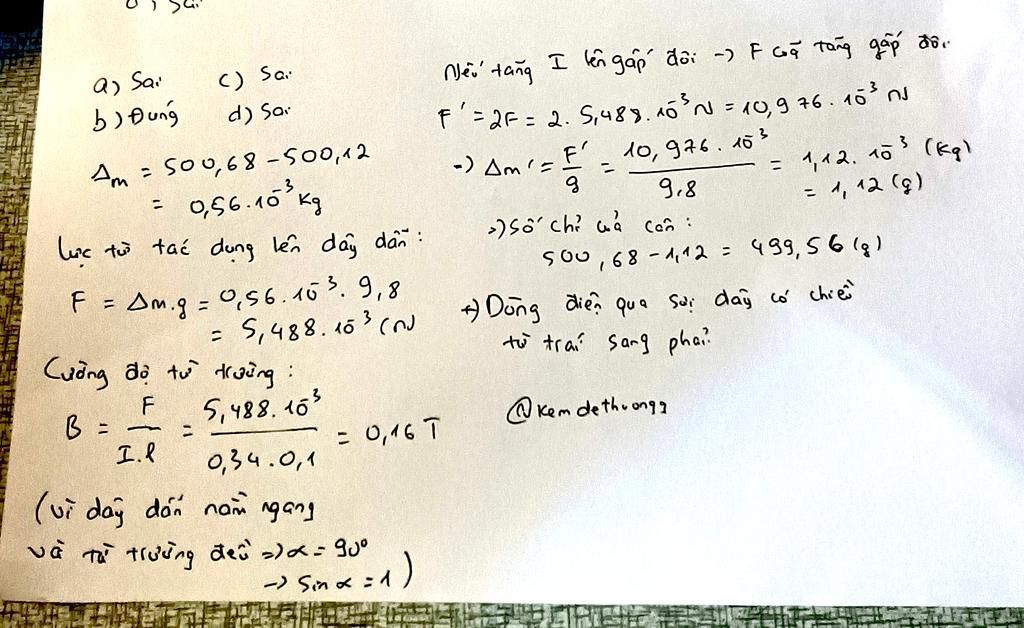 a) Sai c) Sai
b) Đúng d) Sai
Δm = 500,68 - 500,12
= 0,56.10⁻³ Kg
Lực từ tác dụng lên dây dẫn:
F = Δm.g = 0,56.10⁻³. 9,8
= 5,488.10⁻³ (N)
Cường độ từ trường:
B = F / I.l = 5,488.10⁻³ / 0,34.0,1 = 0,16 T
(vì dây dẫn nằm ngang
và từ trường đều => α = 90°
-> sin α = 1)
Nếu tăng I lên gấp đôi -> F cũg tăng gấp đôi.
F' = 2F = 2. 5,488.10⁻³ N = 10,976.10⁻³ N
-> Δm' = F' / g = 10,976.10⁻³ / 9,8 = 1,12.10⁻³ (Kg)
= 1,12 (g)
=> Số chỉ của cân:
500,68 - 1,12 = 499,56 (g)
+) Dòng điện qua sợi dây có chiều
từ trái sang phải
@kemdethuongg